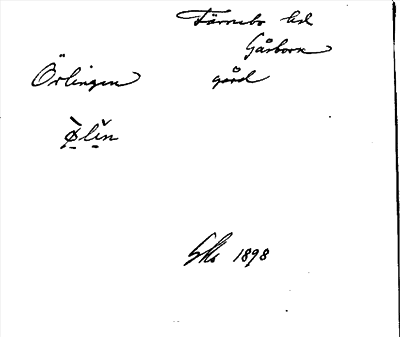 Färnebo hd
Gåsborn
Örlingen gård
Ølin
1898